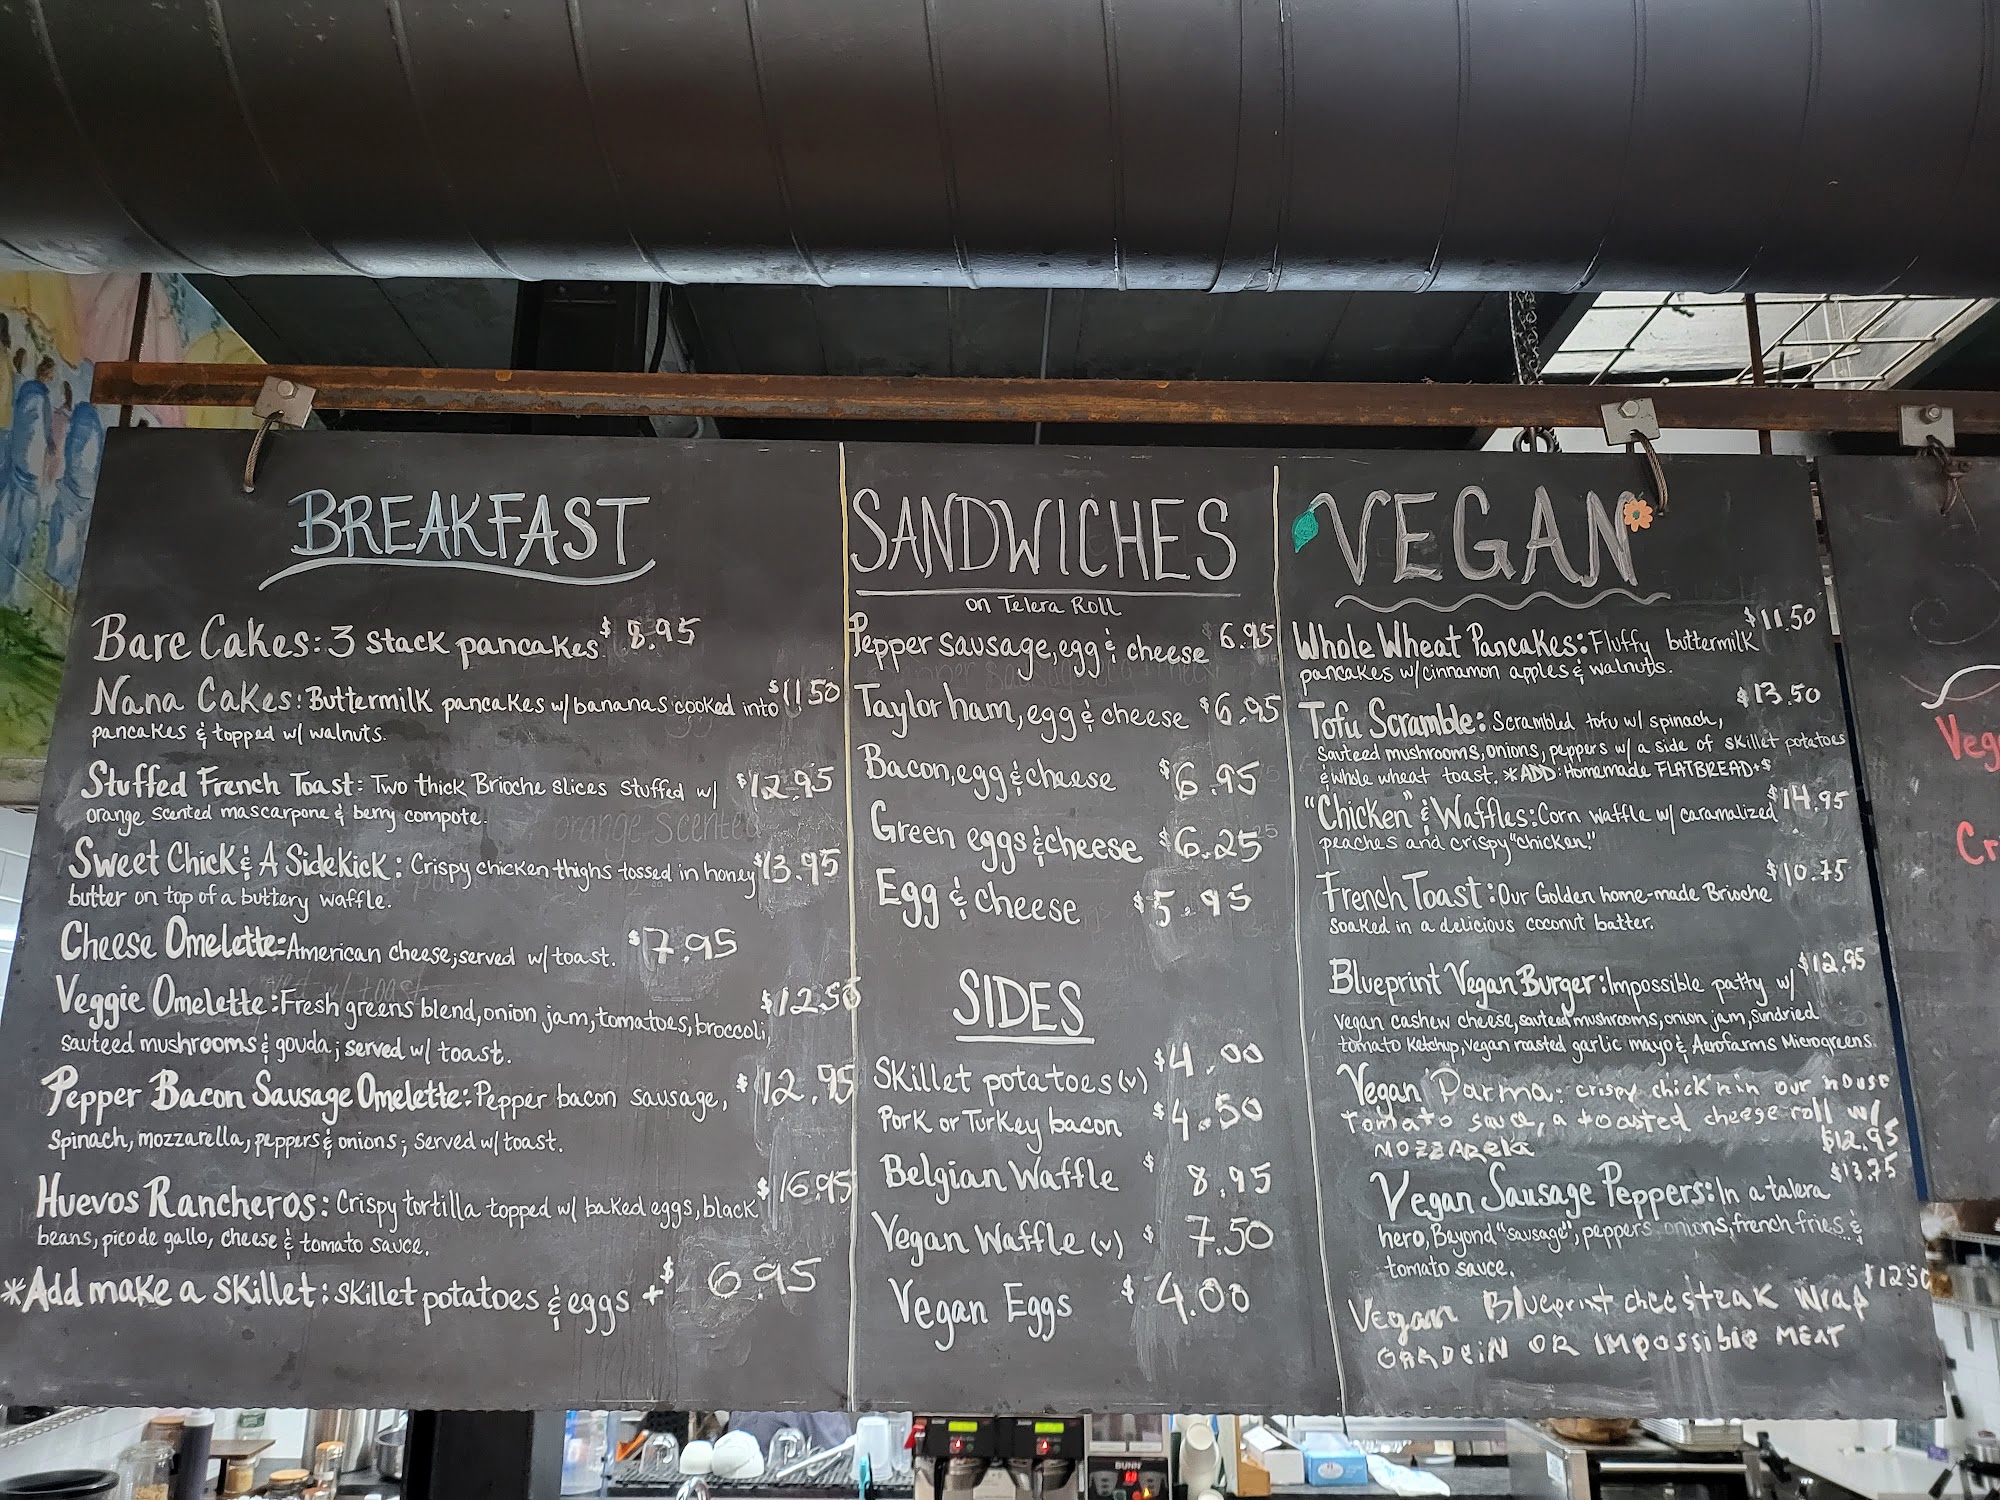 BREAKFAST
Bare Cakes: 3 stack pancakes $8.95
Nana Cakes: Buttermilk pancakes w/ bananas cooked into $11.50
pancakes & topped w/ walnuts.
Stuffed French Toast: Two thick Brioche slices stuffed w/ $12.95
orange scented mascarpone & berry compote.
Sweet Chick & A Sidekick: Crispy chicken thighs tossed in honey $13.95
butter on top of a buttery waffle.
Cheese Omelette: American cheese; served w/ toast. $7.95
Veggie Omelette: Fresh greens blend, onion jam, tomatoes, broccoli, $12.50
sauteed mushrooms & gouda; served w/ toast.
Pepper Bacon Sausage Omelette: Pepper bacon sausage, $12.95
spinach, mozzarella, peppers & onions; served w/ toast.
Huevos Rancheros: Crispy tortilla topped w/ baked eggs, black $16.95
beans, pico de gallo, cheese & tomato sauce.
*Add make a skillet: skillet potatoes & eggs + $6.95
SANDWICHES
on Telera Roll
Pepper sausage, egg & cheese 6.95
Taylor ham, egg & cheese $6.95
Bacon, egg & cheese $6.95
Green eggs & cheese $6.25
Egg & cheese $5.95
SIDES
Skillet potatoes (v) $4.00
Pork or Turkey bacon $4.50
Belgian Waffle $8.95
Vegan Waffle (v) $7.50
Vegan Eggs $4.00
VEGAN
Whole Wheat Pancakes: Fluffy buttermilk $11.50
pancakes w/ cinnamon apples & walnuts.
Tofu Scramble: Scrambled tofu w/ spinach, $13.50
sauteed mushrooms, onions, peppers w/ a side of skillet potatoes
& whole wheat toast. *ADD: Homemade FLATBREAD+$
"Chicken" & Waffles: Corn waffle w/ caramalized $14.95
peaches and crispy "chicken."
French Toast: Our Golden home-made Brioche $10.75
soaked in a delicious coconut batter.
Blueprint Vegan Burger: Impossible patty w/ $12.95
vegan cashew cheese, sauteed mushrooms, onion jam, sundried
tomato ketchup, vegan roasted garlic mayo & Aerofarms Microgreens.
Vegan Parma: crispy chick'n in our house
tomato sauce, a toasted cheese roll w/
MOZZARELA $12.95
Vegan Sausage Peppers: In a talera $13.75
hero, Beyond "sausage", peppers onions, french fries &
tomato sauce.
Vegan Blueprint cheesteak Wrap $12.50
GARDEIN OR IMPOSSIBLE MEAT
BUNN